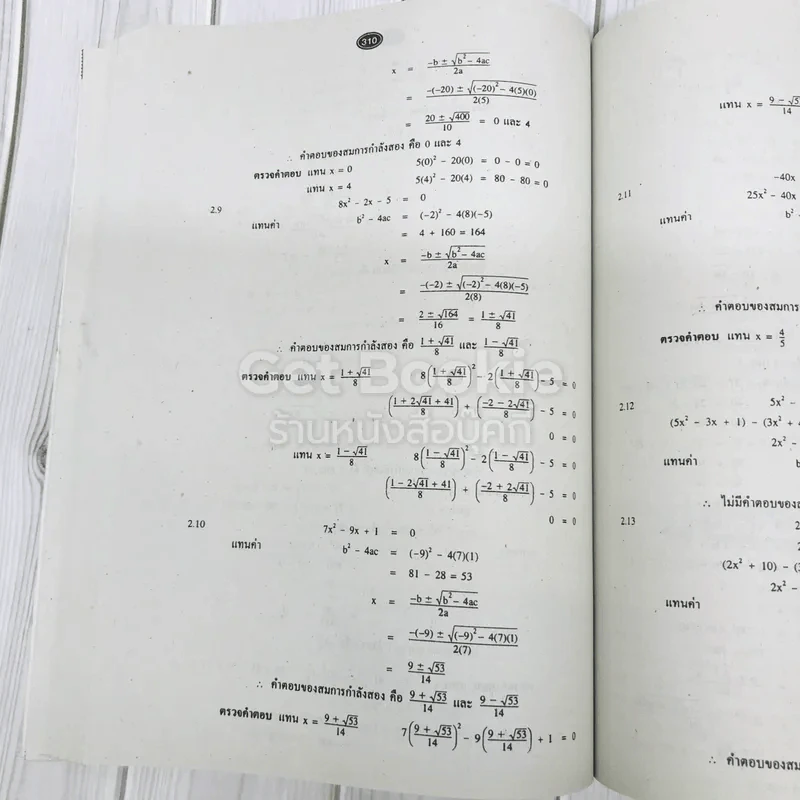 310
x = \frac{-b ± √(b² - 4ac)}{2a}
= \frac{-(-20) ± √((-20)² - 4(5)(0))}{2(5)}
= \frac{20 ± √400}{10} = 0 และ 4
∴ คำตอบของสมการกำลังสอง คือ 0 และ 4
ตรวจคำตอบ แทน x = 0 5(0)² - 20(0) = 0 - 0 = 0
แทน x = 4 5(4)² - 20(4) = 80 - 80 = 0
2.9 8x² - 2x - 5 = 0
แทนค่า b² - 4ac = (-2)² - 4(8)(-5)
= 4 + 160 = 164
x = \frac{-b ± √(b² - 4ac)}{2a}
= \frac{-(-2) ± √((-2)² - 4(8)(-5))}{2(8)}
= \frac{2 ± √164}{16} = \frac{1 ± √41}{8}
∴ คำตอบของสมการกำลังสอง คือ \frac{1 + √41}{8} และ \frac{1 - √41}{8}
Get Bookie
ตรวจคำตอบ แทน x = \frac{1 + √41}{8} 8(\frac{1 + √41}{8})² - 2(\frac{1 + √41}{8}) - 5 = 0
(\frac{1 + 2√41 + 41}{8}) + (\frac{-2 - 2√41}{8}) - 5 = 0
ร้านหนังสือบุ๊คกี้
0 = 0
แทน x = \frac{1 - √41}{8} 8(\frac{1 - √41}{8})² - 2(\frac{1 - √41}{8}) - 5 = 0
(\frac{1 - 2√41 + 41}{8}) + (\frac{-2 + 2√41}{8}) - 5 = 0
0 = 0
2.10 7x² - 9x + 1 = 0
แทนค่า b² - 4ac = (-9)² - 4(7)(1)
= 81 - 28 = 53
x = \frac{-b ± √(b² - 4ac)}{2a}
= \frac{-(-9) ± √((-9)² - 4(7)(1))}{2(7)}
= \frac{9 ± √53}{14}
∴ คำตอบของสมการกำลังสอง คือ \frac{9 + √53}{14} และ \frac{9 - √53}{14}
ตรวจคำตอบ แทน x = \frac{9 + √53}{14} 7(\frac{9 + √53}{14})² - 9(\frac{9 + √53}{14}) + 1 = 0
แทน x = \frac{9 - √5}{14}
-40x
2.11 25x² - 40x
แทนค่า b²
∴ คำตอบของสมการ
ตรวจคำตอบ แทน x = \frac{4}{5}
2.12 5x² -
(5x² - 3x + 1) - (3x² +
2x² -
แทนค่า b
∴ ไม่มีคำตอบของ
2.13 2
2
(2x² + 10) - (
2x² -
แทนค่า
∴ คำตอบของสม